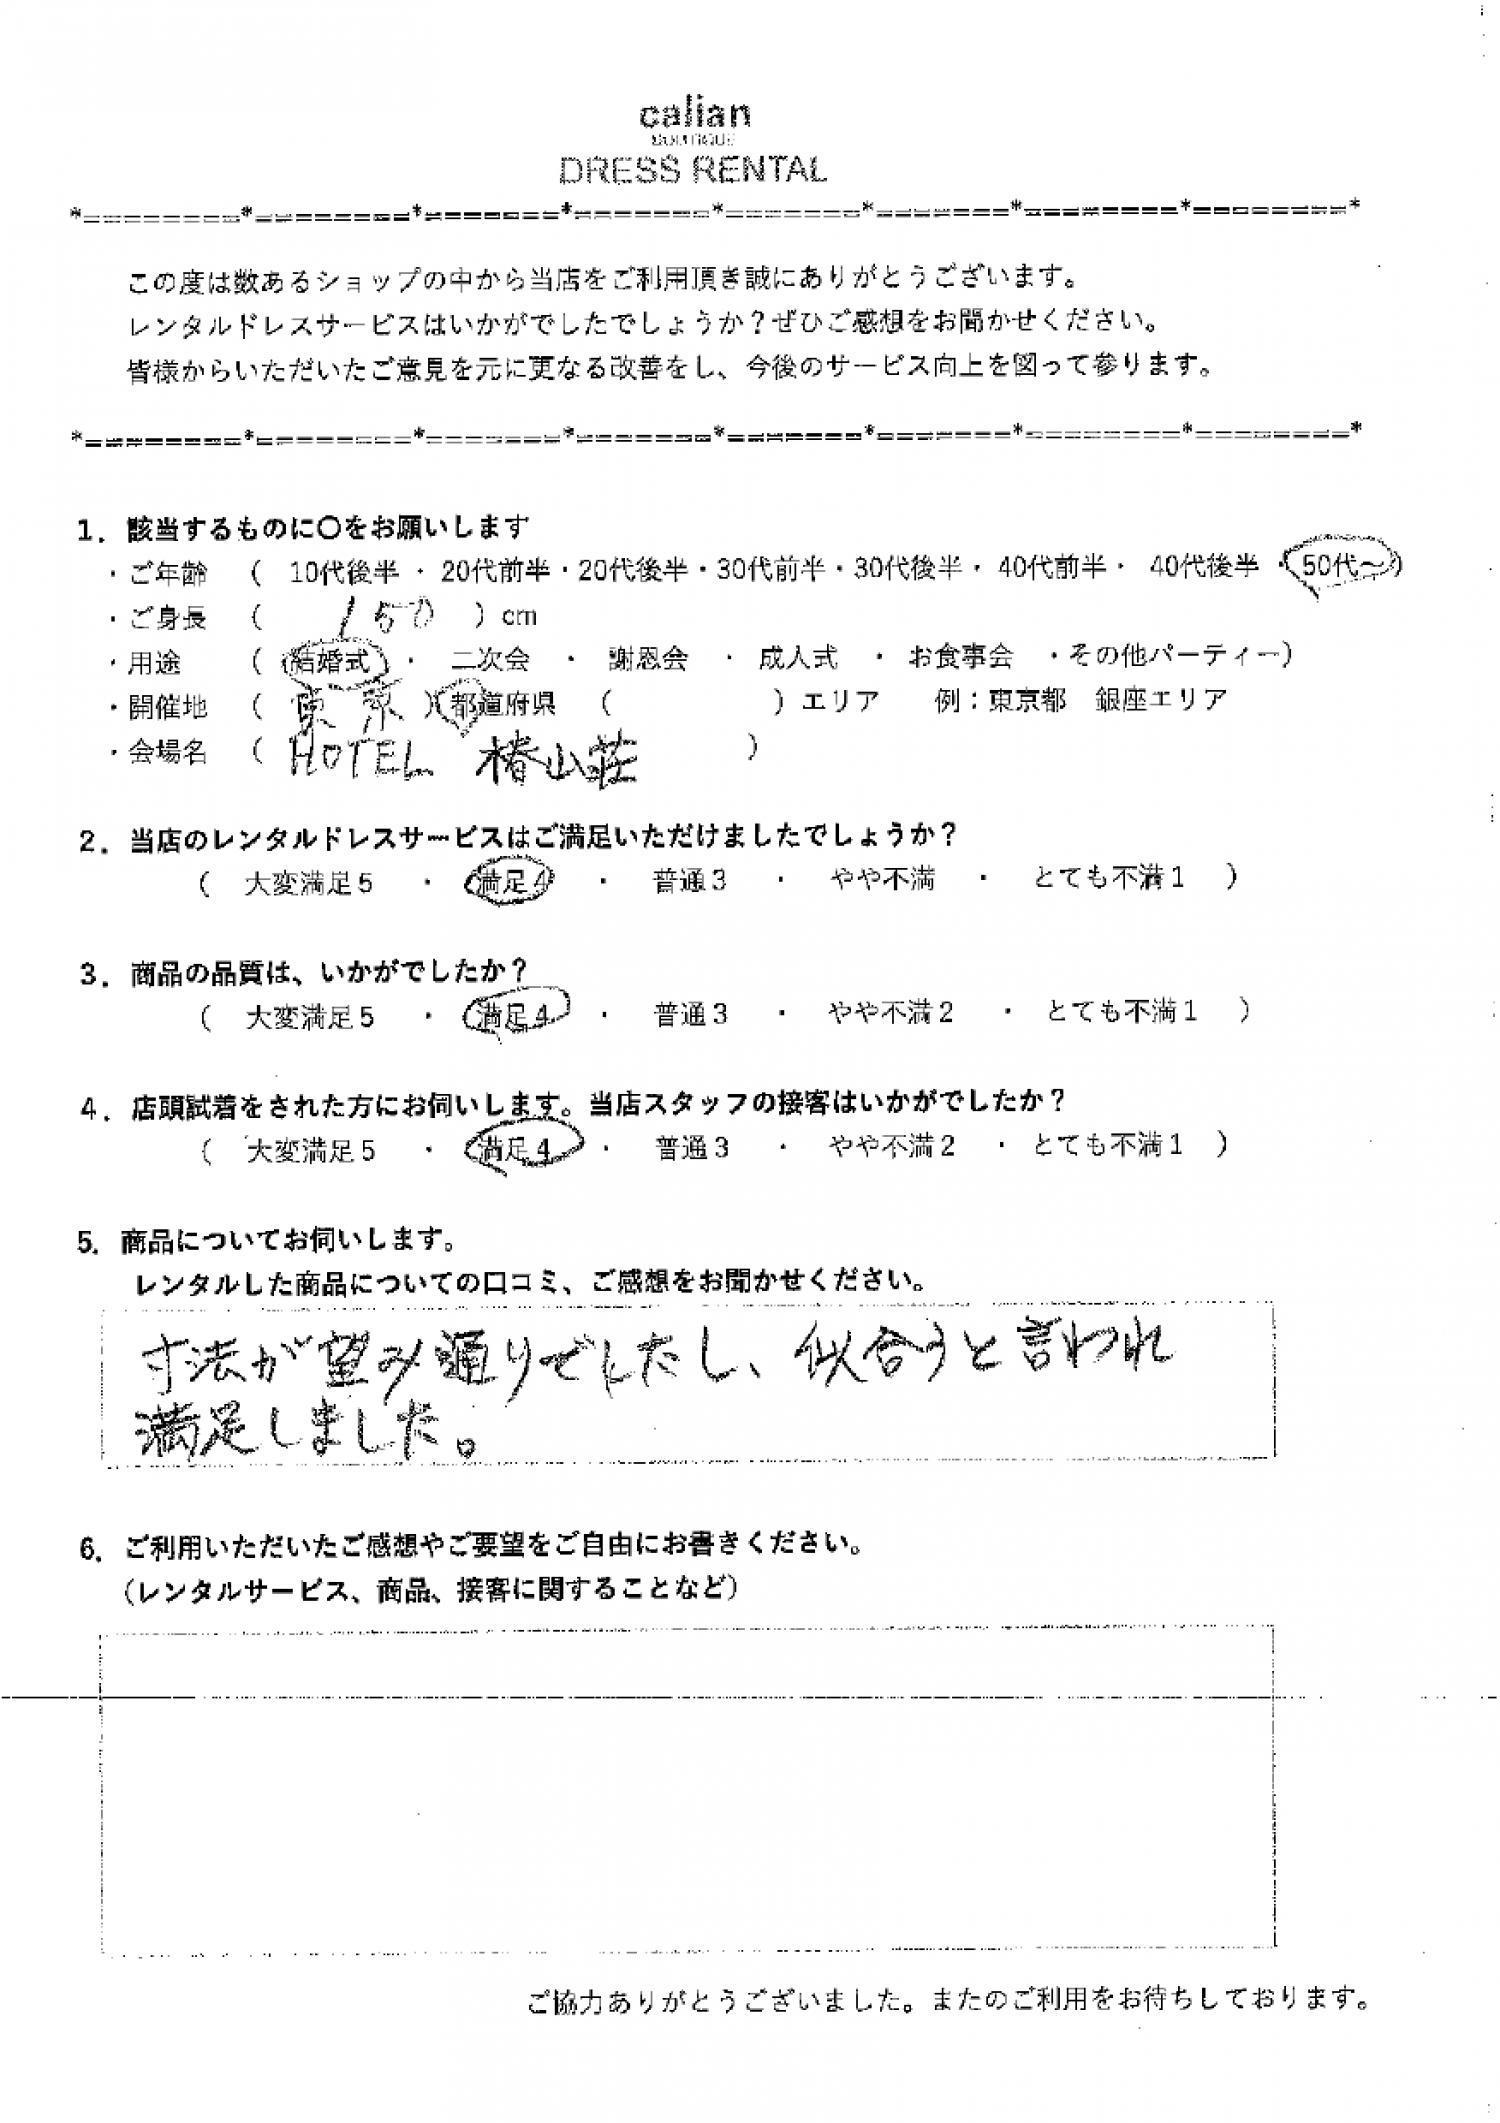 calian
BOUTIQUE
DRESS RENTAL
*========*========*=======*=======*=======*=======*========*========*
この度は数あるショップの中から当店をご利用頂き誠にありがとうございます。
レンタルドレスサービスはいかがでしたでしょうか？ぜひご感想をお聞かせください。
皆様からいただいたご意見を元に更なる改善をし、今後のサービス向上を図って参ります。
*========*========*=======*=======*=======*=======*========*========*
1．該当するものに〇をお願いします
・ご年齢 （ 10代後半 ・ 20代前半・20代後半・30代前半・30代後半・ 40代前半・ 40代後半 ・50代～）
・ご身長 （ 150 ）cm
・用途 （ 結婚式 ・ 二次会 ・ 謝恩会 ・ 成人式 ・ お食事会 ・その他パーティー）
・開催地 （ 東京 ）都道府県 （ ）エリア 例：東京都 銀座エリア
・会場名 （ HOTEL 椿山荘 ）
2．当店のレンタルドレスサービスはご満足いただけましたでしょうか？
（ 大変満足５ ・ 満足４ ・ 普通３ ・ やや不満 ・ とても不満１ ）
3．商品の品質は、いかがでしたか？
（ 大変満足５ ・ 満足４ ・ 普通３ ・ やや不満２ ・ とても不満１ ）
4．店頭試着をされた方にお伺いします。当店スタッフの接客はいかがでしたか？
（ 大変満足５ ・ 満足４ ・ 普通３ ・ やや不満２ ・ とても不満１ ）
5．商品についてお伺いします。
レンタルした商品についての口コミ、ご感想をお聞かせください。
寸法が望み通りでしたし、似合うと言われ
満足しました。
6．ご利用いただいたご感想やご要望をご自由にお書きください。
（レンタルサービス、商品、接客に関することなど）
ご協力ありがとうございました。またのご利用をお待ちしております。